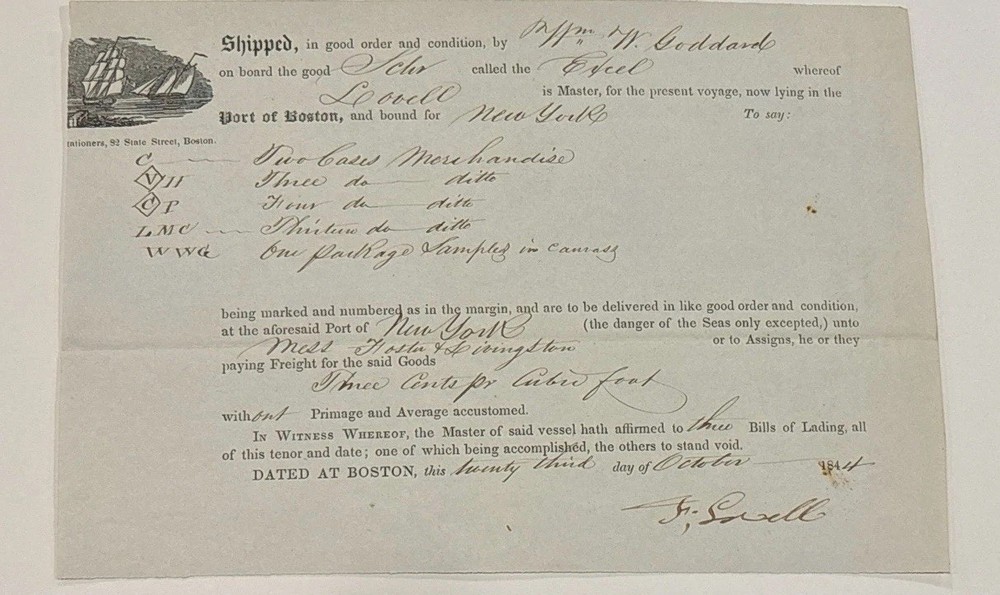 Shipped, in good order and condition, by Wm W. Goddard
on board the good Schr called the Excel whereof
Lovell is Master, for the present voyage, now lying in the
Port of Boston, and bound for New York To say:
tationers, 92 State Street, Boston.
C Two Cases Merchandise
V H Three do ditto
C P Four do ditto
L M C Thirteen do ditto
W W G One package Samples in canvass
being marked and numbered as in the margin, and are to be delivered in like good order and condition,
at the aforesaid Port of New York (the danger of the Seas only excepted,) unto
Mess Foster & Livingston or to Assigns, he or they
paying Freight for the said Goods
Three Cents pr Cubic foot
without Primage and Average accustomed.
IN WITNESS WHEREOF, the Master of said vessel hath affirmed to three Bills of Lading, all
of this tenor and date; one of which being accomplished, the others to stand void.
DATED AT BOSTON, this twenty third day of October 1844
F. Lovell